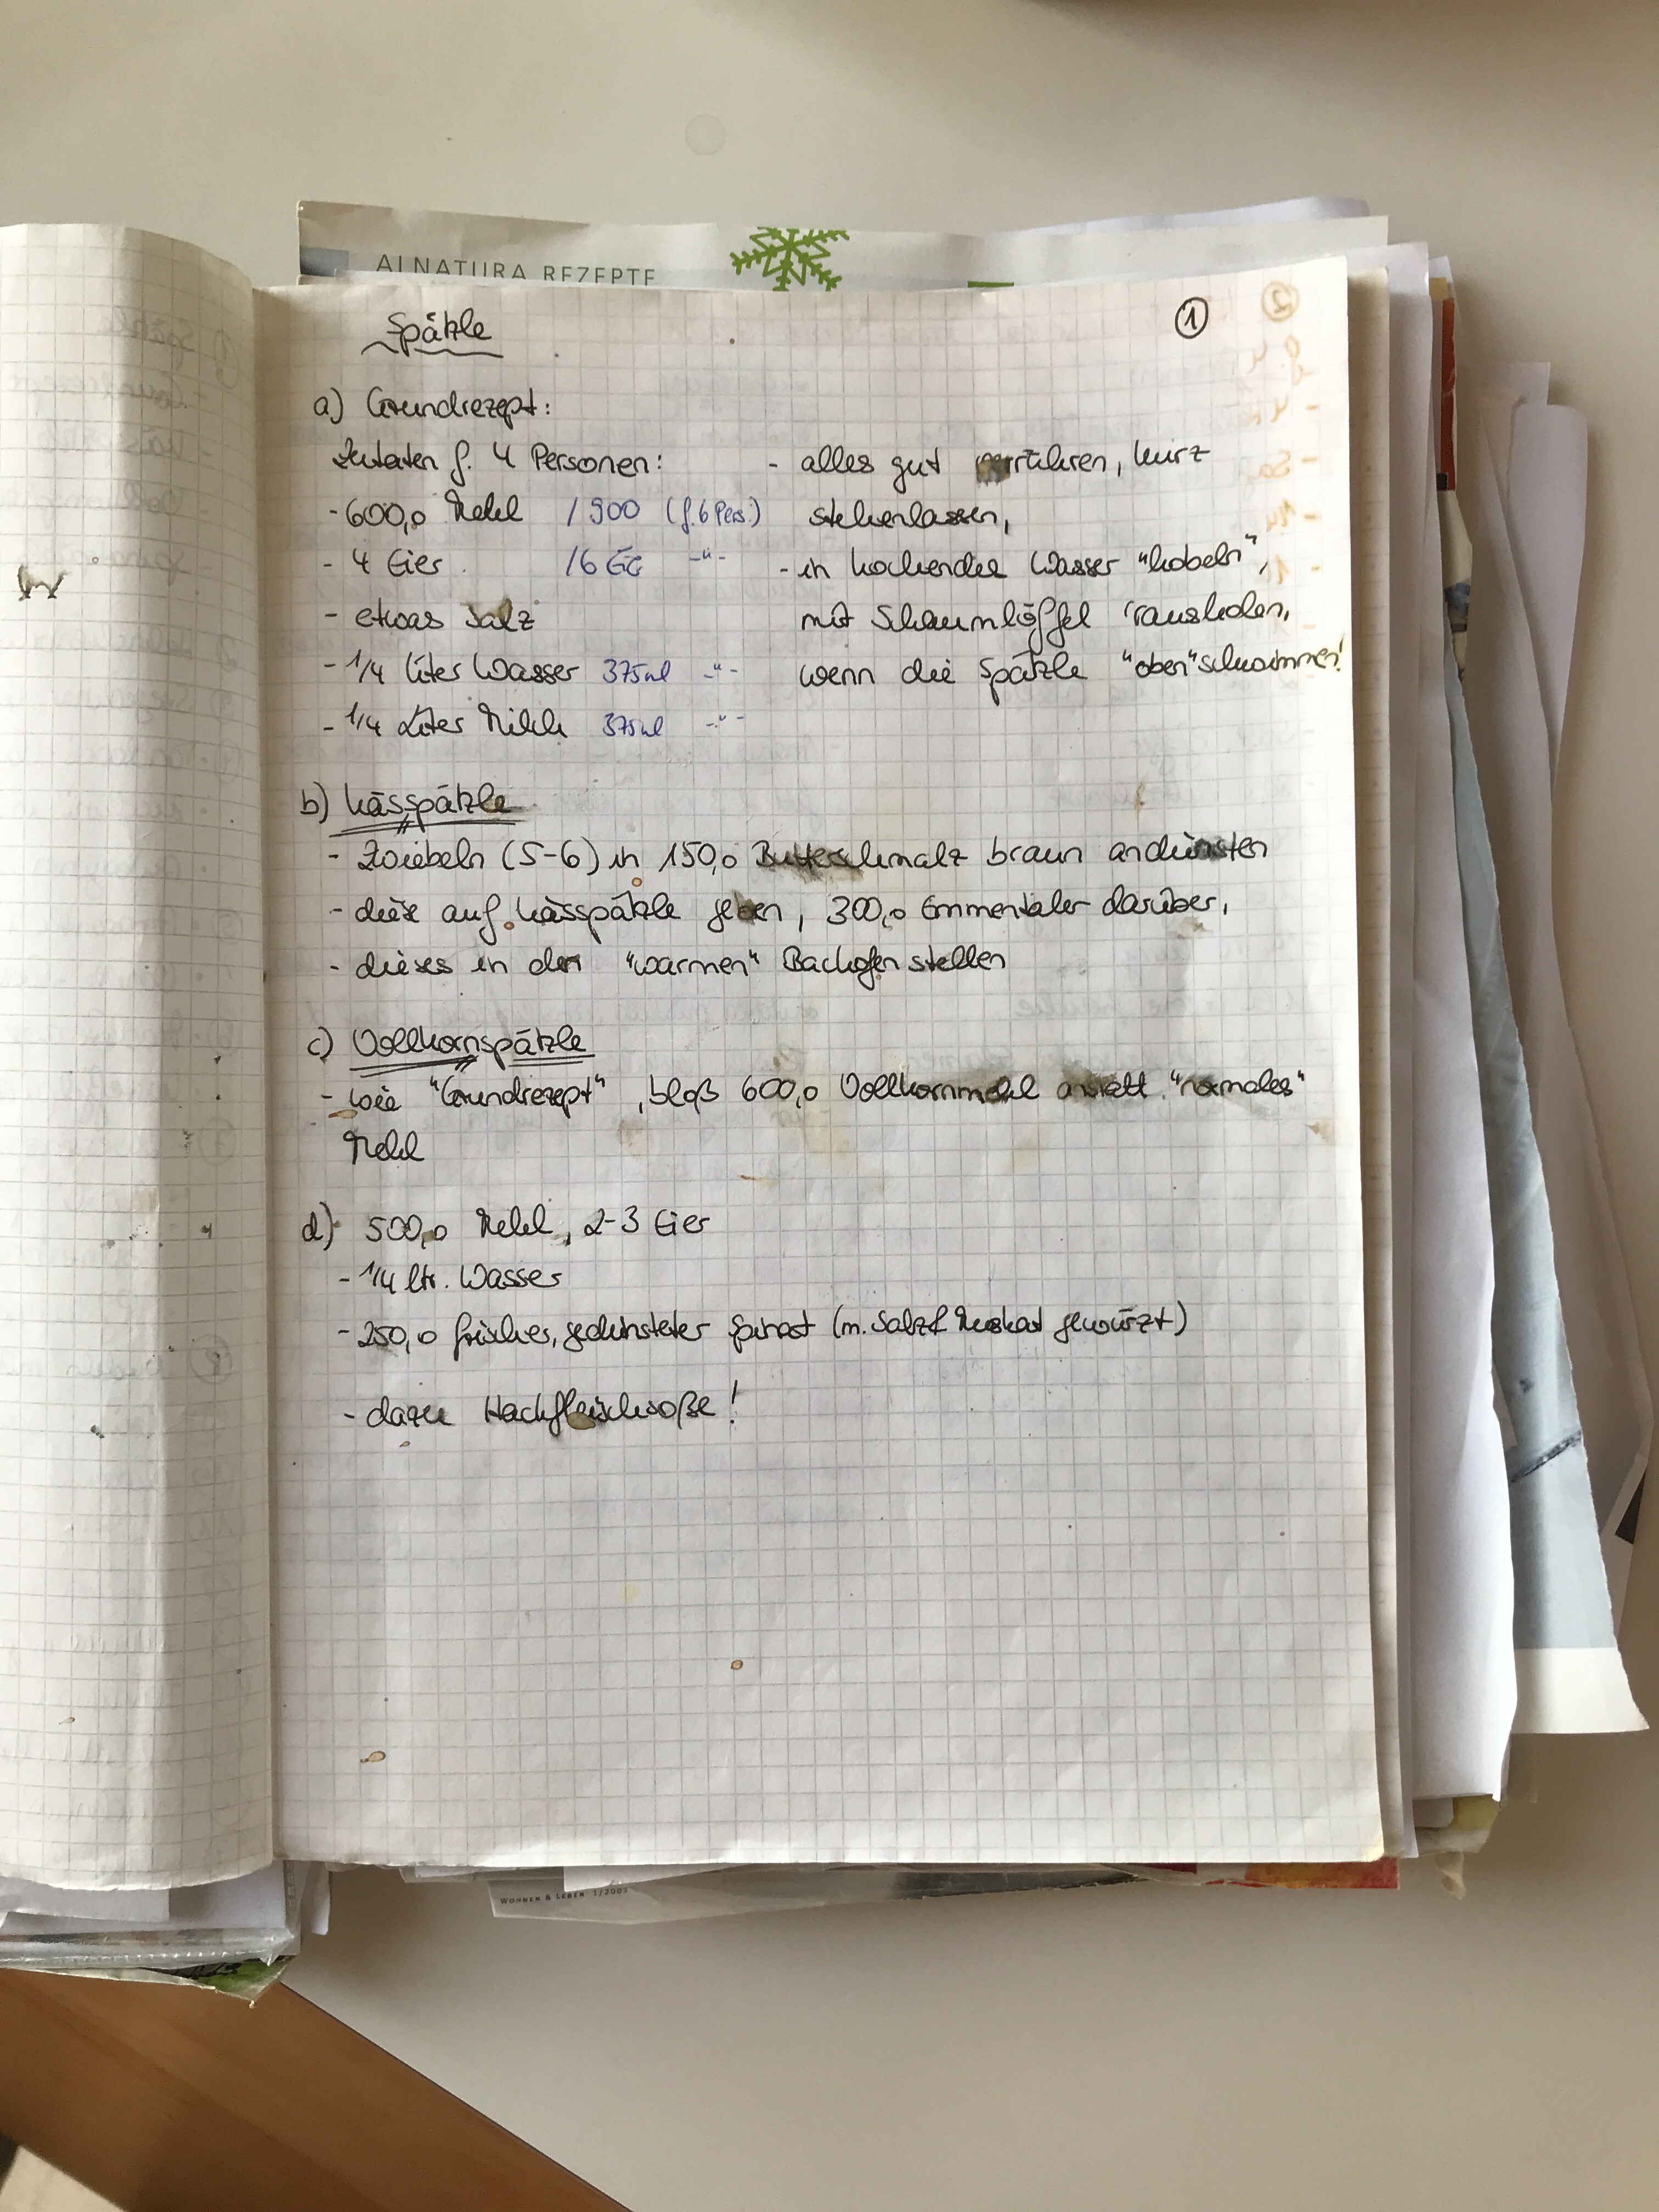 ALNATURA REZEPTE
Spätzle
1
a) Grundrezept:
Zutaten f. 4 Personen:
- 600,0 Mehl / 900 (f. 6 Pers.)
- 4 Eier / 6 -"-
- etwas Salz
- 1/4 Liter Wasser 375ml -"-
- 1/4 Liter Milch 375ml -"-
- alles gut verrühren, kurz
stehenlassen,
- in kochendes Wasser "hobeln",
mit Schaumlöffel 'rausholen,
wenn die Spätzle "oben" schwimmen!
b) Kässpätzle
- Zwiebeln (5-6) in 150,0 Butterschmalz braun andünsten
- diese auf Kässpätzle geben, 300,0 Emmentaler darüber,
- dieses in den "warmen" Backofen stellen
c) Vollkornspätzle
- wie "Grundrezept", bloß 600,0 Vollkornmehl anstatt "normales"
Mehl
d) 500,0 Mehl, 2-3 Eier
- 1/4 ltr. Wasser
- 250,0 frischer, gedünsteter Spinat (m. Salz & Muskat gewürzt)
- dazu Hackfleischsoße!
WOHNEN & LEBEN 1/2009